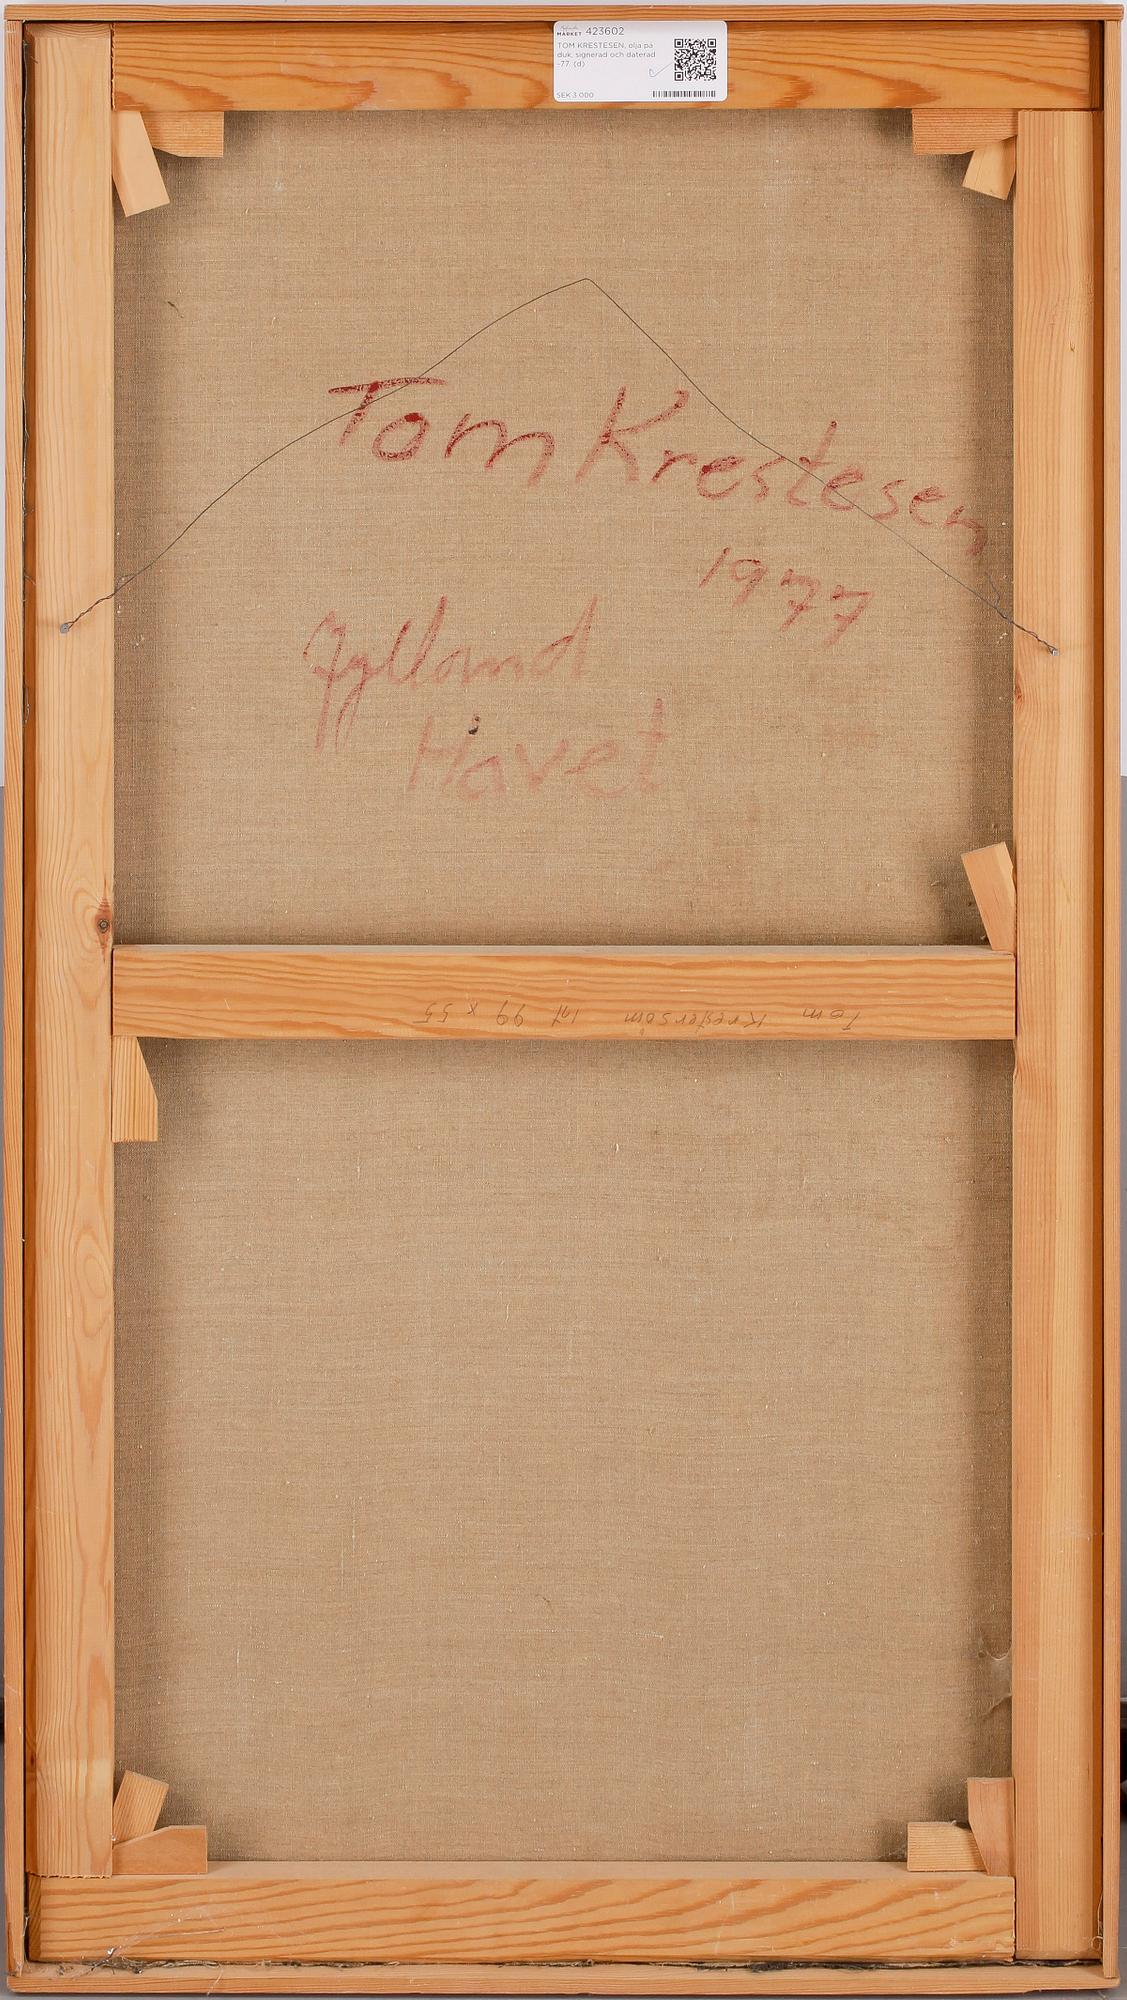 MARKET 423602
TOM KRESTESEN, olja på
duk, signerad och daterad
-77. (d)
SEK 3 000
Tom Krestesen
1977
Jylland
Havet
Tom Kresterson Int 99 x 55